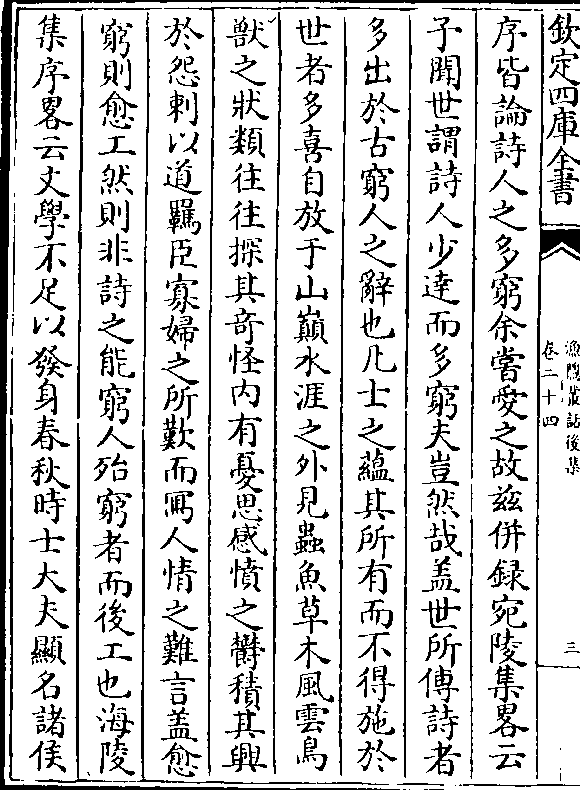 欽定四庫全書
漁隱叢話後集
卷二十四
三
序皆論詩人之多窮余嘗愛之故兹併録宛陵集畧云
予聞世謂詩人少達而多窮夫豈然哉盖世所傳詩者
多出於古窮人之辭也凡士之藴其所有而不得施於
世者多喜自放于山巔水涯之外見蟲魚草木風雲鳥
獸之狀類往往探其奇怪内有憂思感憤之欝積其興
於怨刺以道羈臣寡婦之所歎而冩人情之難言盖愈
窮則愈工然則非詩之能窮人殆窮者而後工也海陵
集序畧云文學不足以發身春秋時士大夫顯名諸侯